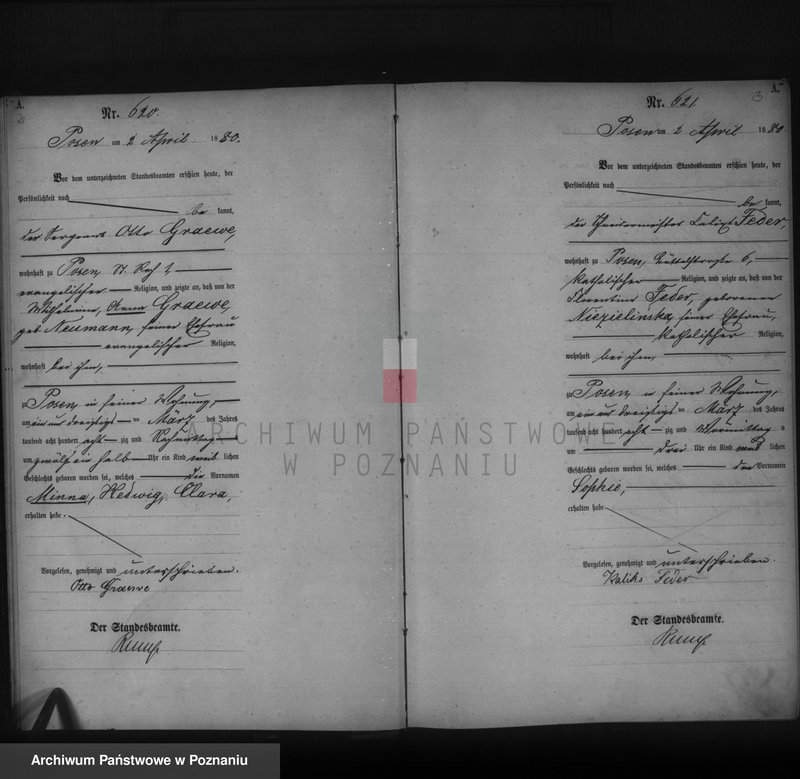 A.
Nr. 620.
Posen am 2 April 1880.
Vor dem unterzeichneten Standesbeamten erschien heute, der
Persönlichkeit nach
be kannt,
der Sergeant Otto Graewe,
wohnhaft zu Posen,
evangelischer Religion, und zeigte an, daß von der
Wilhelmine, Anna Graewe,
geb. Neumann, seiner Ehefrau
evangelischer Religion,
wohnhaft bei ihm,
zu Posen, in seiner Wohnung,
am ein und dreißigsten März des Jahres
tausend acht hundert acht zig und Nachmittags
um zwölf ein halb Uhr ein Kind weib lichen
Geschlechts geboren worden sei, welches die Vornamen
Minna, Hedwig, Clara,
erhalten habe.
Vorgelesen, genehmigt und unterschrieben.
Otto Graewe
Der Standesbeamte.
A.
3
Nr. 621.
Posen am 2 April 1880.
Vor dem unterzeichneten Standesbeamten erschien heute, der
Persönlichkeit nach
be kannt,
der Schneidermeister Calixt Feder,
wohnhaft zu Posen, Büttelstraße 6,
katholischer Religion, und zeigte an, daß von der
Florentine Feder, geborenen
Niezielińska, seiner Ehefrau,
katholischer Religion,
wohnhaft bei ihm,
zu Posen in seiner Wohnung,
am ein und dreißigsten März des Jahres
tausend acht hundert acht zig und Vormittag s
um drei Uhr ein Kind weib lichen
Geschlechts geboren worden sei, welches den Vornamen
Sophie,
erhalten habe
Vorgelesen, genehmigt und unterschrieben.
Kaliks Feder
Der Standesbeamte.
ARCHIWUM PAŃSTWOWE
W POZNANIU
Archiwum Państwowe w Poznaniu